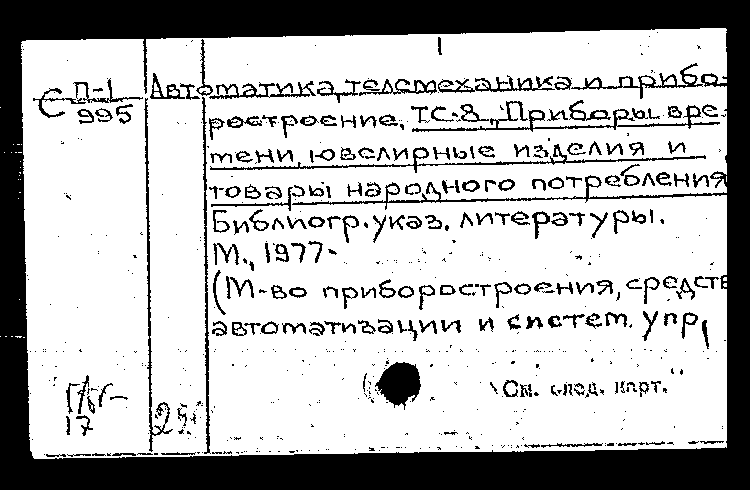 С П-1
995
Автоматика, телемеханика и прибо-
ростроение. ТС-8 „Приборы вре-
мени, ювелирные изделия и
товары народного потребления
Библиогр. указ. литературы.
М., 1977-
(М-во приборостроения, средств
автоматизации и систем. упр,
\См. след. карт."
17
25